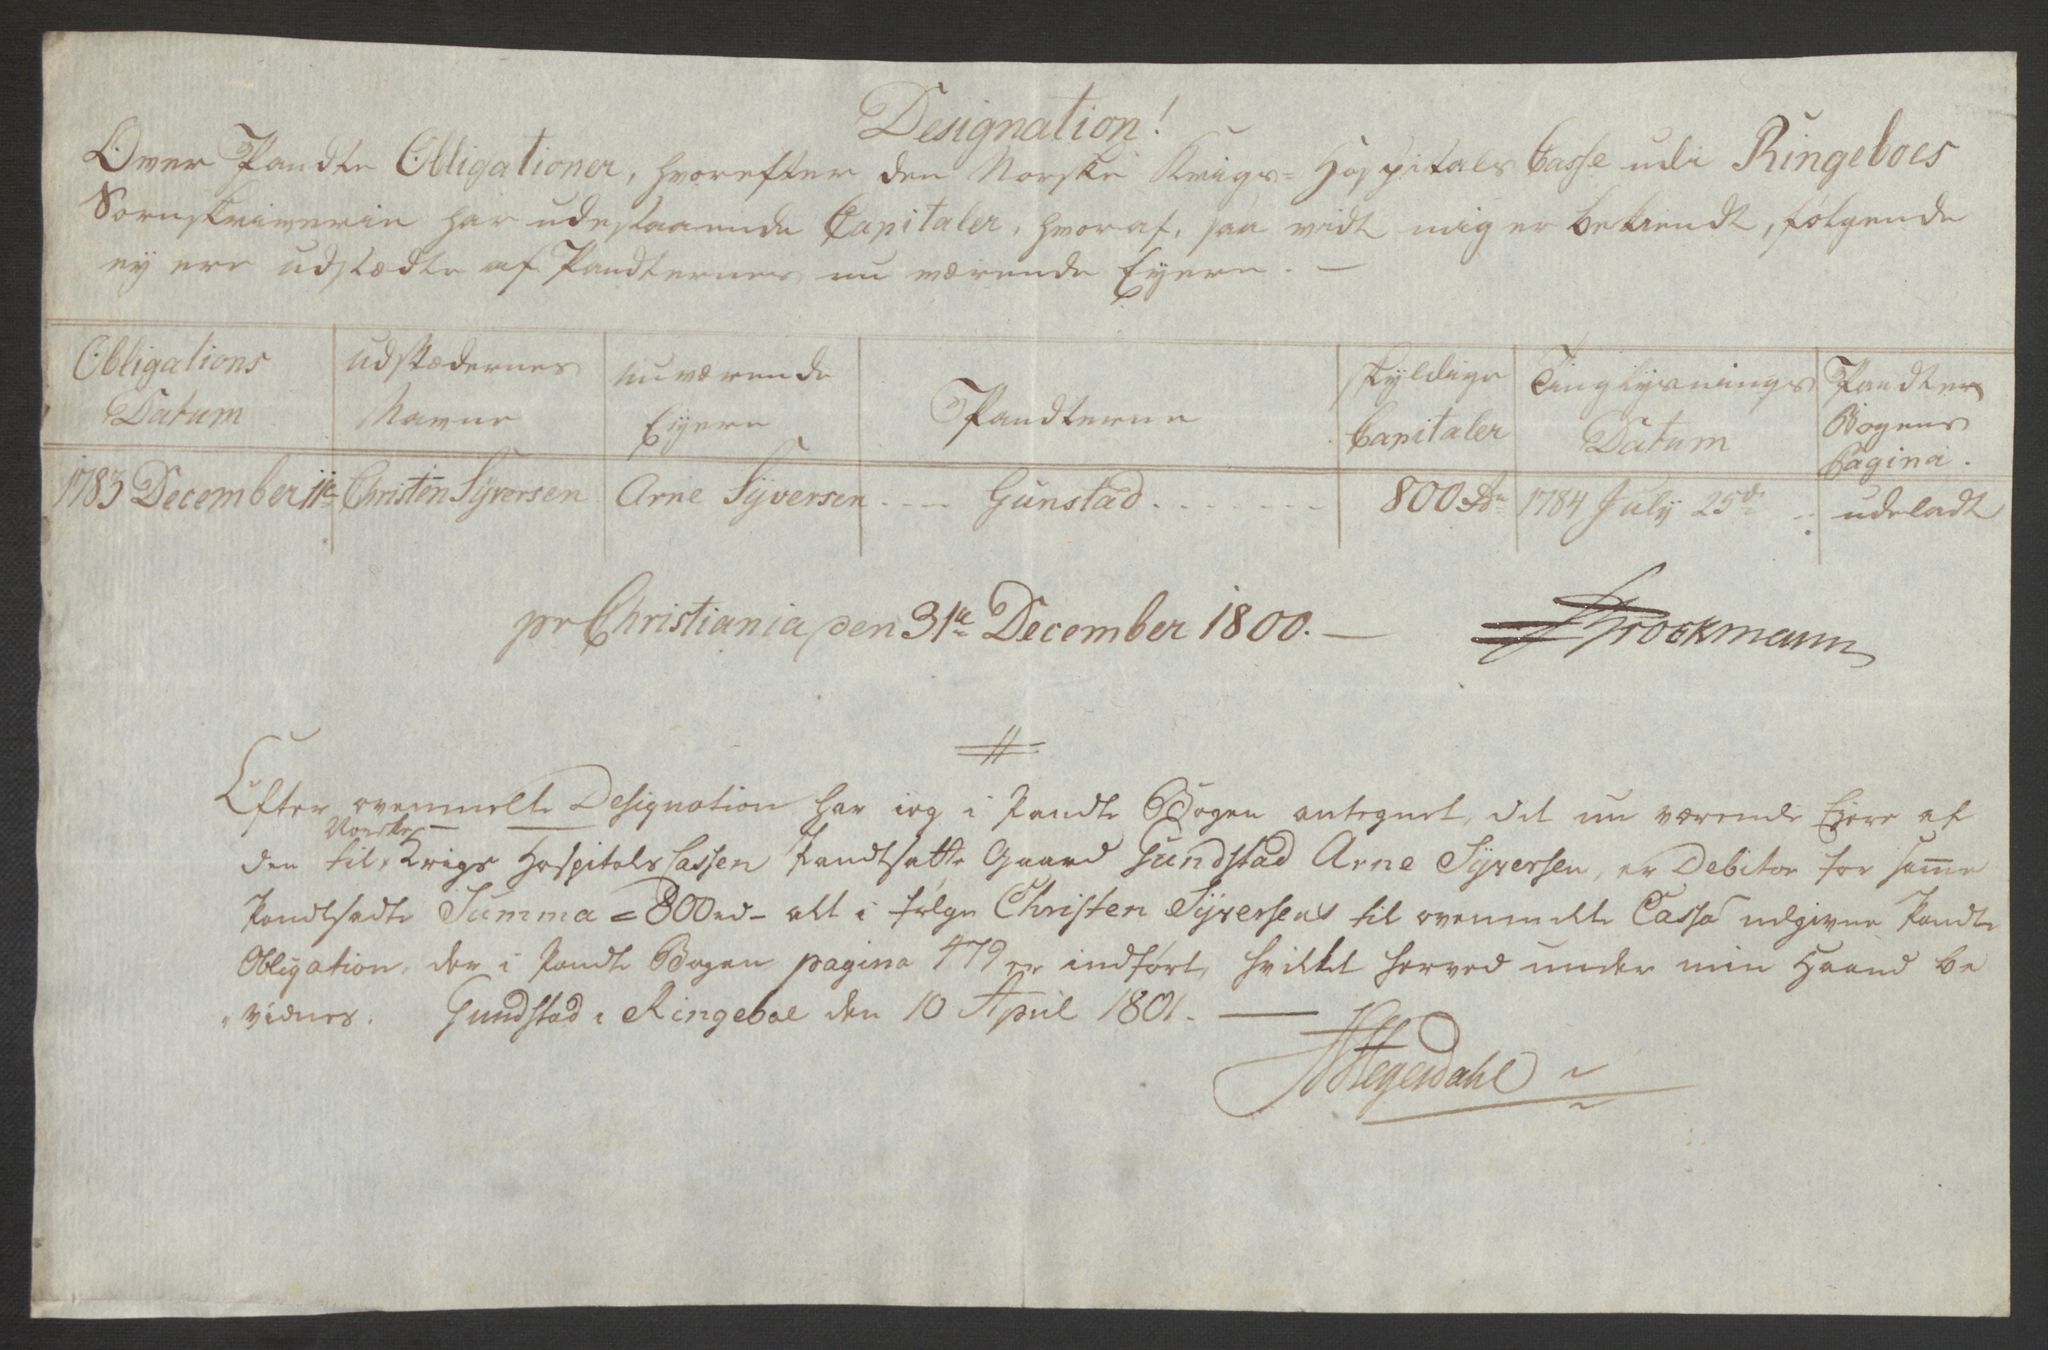 Designation!
Over Pandte Obligationer, hvorefter den Norske Krigs- Hospitals Casse udi Ringeboes
Sornskriverie har udestaaende Capitaler, hvoraf, saa vidt mig er bekiendt, følgende
ey ere udstædte af Pandternes nu værende Eyere. —
Obligations Datum | udstædernes Navne | nuværende Eyere | Pandterne | skyldige Capitaler | Tinglysnings Datum | Pandte Bogens Pagina.
1783 December 11te | Christen Syversen | Arne Syversen | Gunstad | 800 Rd | 1784 July 25de | udeladt
pr Christiania den 31te December 1800. — Brockmann
Efter ovenmelte Designation har ieg i Pandte Bogen antegnet, at nu værende Eyere af
den til Norske Krigs Hospitals Cassen Pandtsatte Gaard Gundstad Arne Syversen, er Debitor for samme
Pandtsadte Summa = 800 rd - alt i følge Christen Syversens til ovenmelte Cassa udgivne Pandte
Obligation, der i Pandte Bogen pagina 479 er indført, hvilket herved under min Haand be
vidnes. Gundstad i Ringeboe den 10 April 1801. —
Stegerdahl